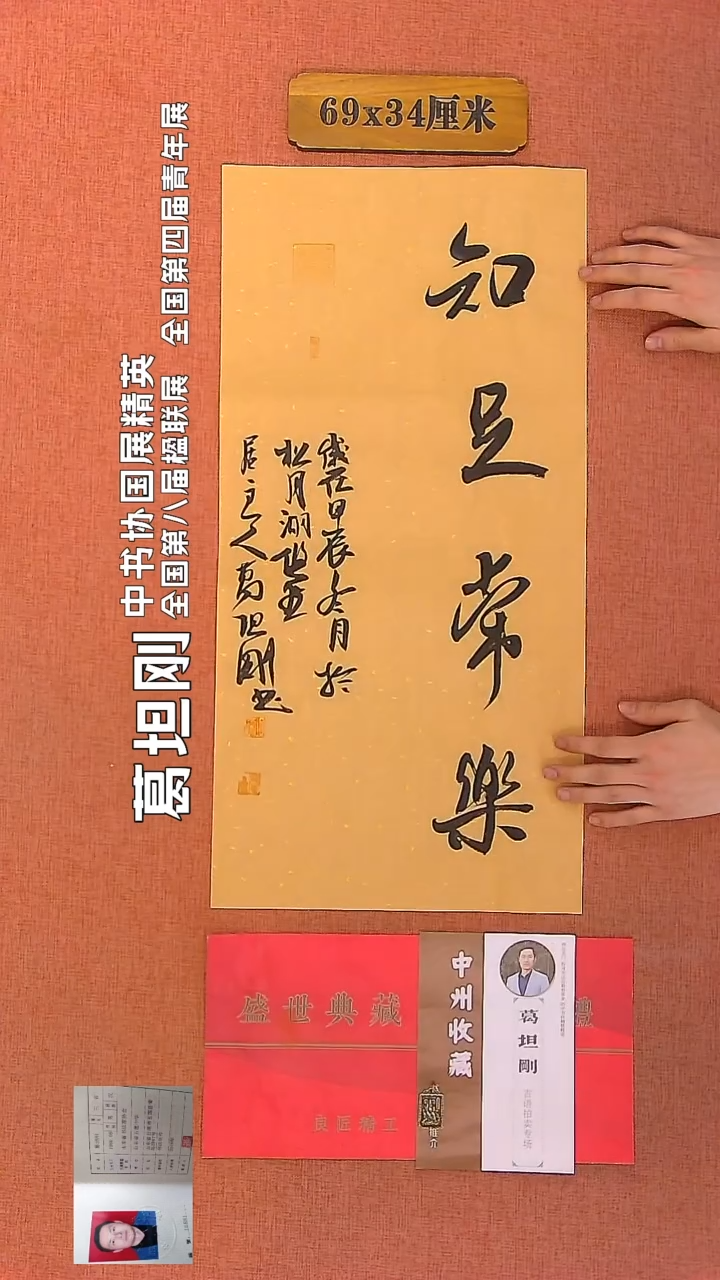 69x34厘米
知足常樂
歲在甲辰冬月於
松月湖
居主人葛坦剛書
中书协国展精英
全国第八届楹联展 全国第四届青年展
葛坦刚
盛世典藏
良匠精工
中州收藏
葛坦剛
吉语拍卖专场
禮